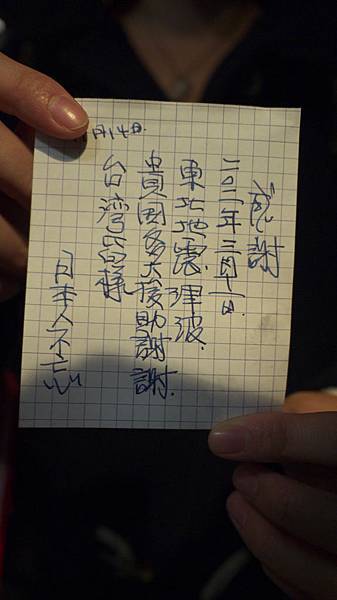 感謝
二〇一一年三月十一日.
東北地震.津波.
貴国多大援助謝謝.
台湾皆様
日本人不忘
月14日.